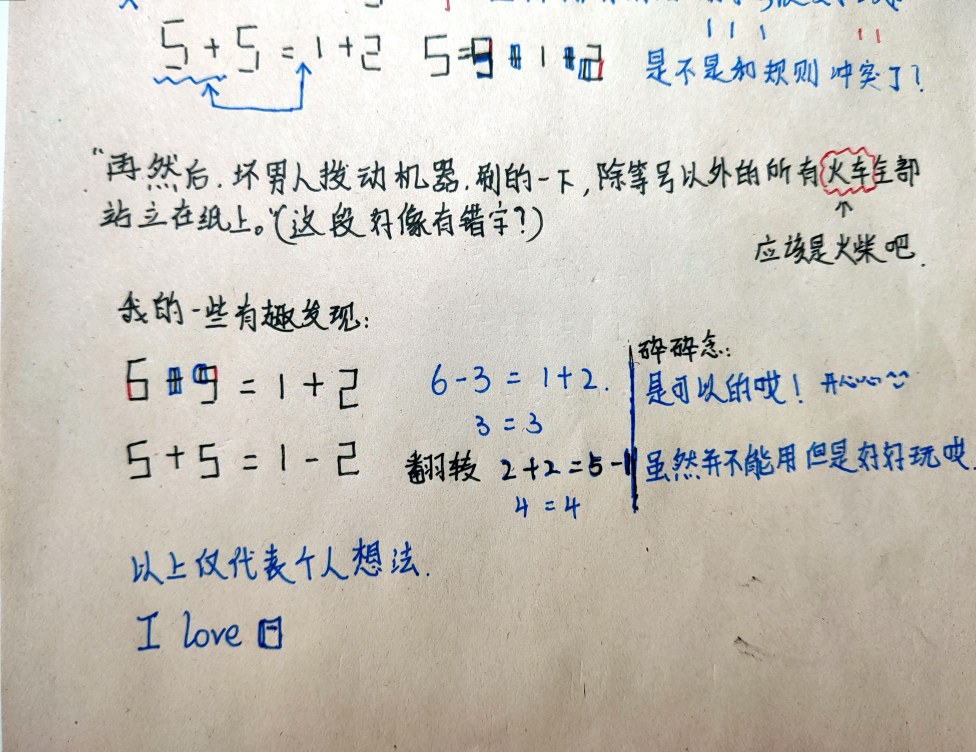 5 + 5 = 1 + 2
是不是和规则冲突了?
"再然后,坏男人拨动机器,刷的一下,除等号以外的所有火车全部
站立在纸上。"(这段好像有错字?)
↑
应该是火柴吧.
我的一些有趣发现:
碎碎念:
= 1 + 2
6 - 3 = 1 + 2.
是可以的哎! 开心心
3 = 3
5 + 5 = 1 - 2
翻转 2 + 2 = 5 - 1
虽然并不能用但是好好玩哎.
4 = 4
以上仅代表个人想法.
I love